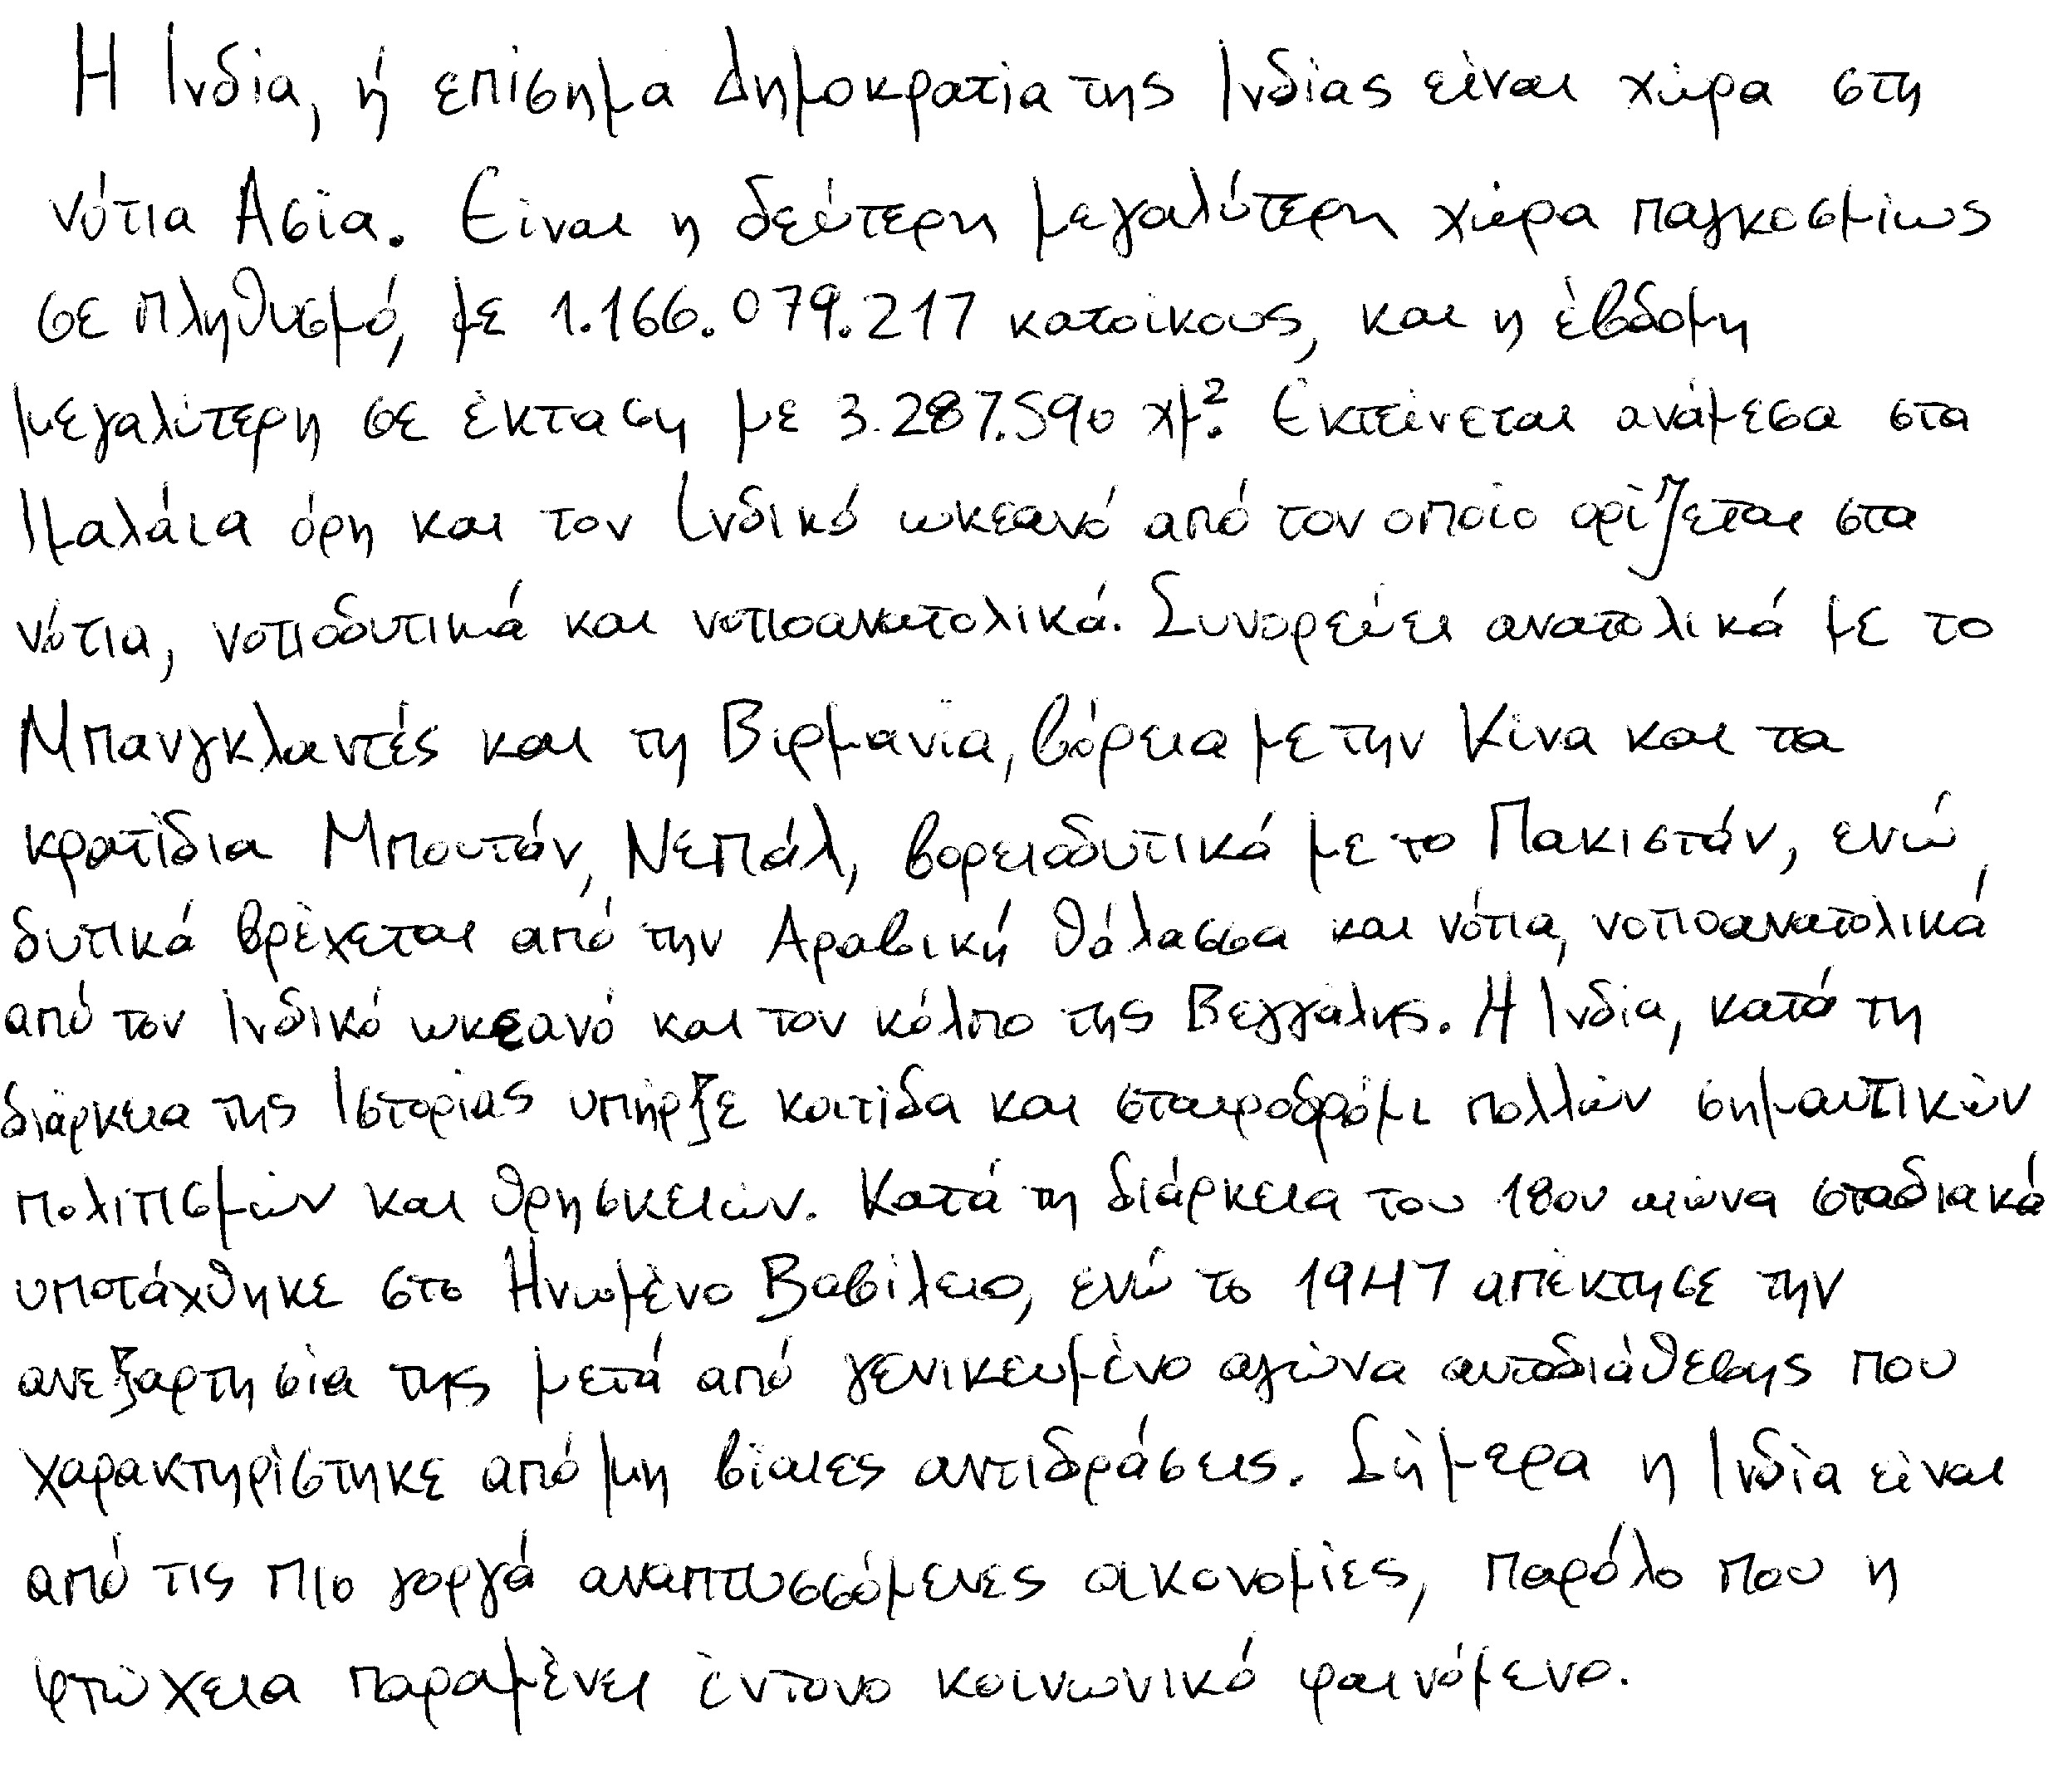 Η Ινδία, ή επίσημα Δημοκρατία της Ινδίας είναι χώρα στη
νότια Ασία. Είναι η δεύτερη μεγαλύτερη χώρα παγκοσμίως
σε πληθυσμό, με 1.166.079.217 κατοίκους, και η έβδομη
μεγαλύτερη σε έκταση με 3.287.590 χμ². Εκτείνεται ανάμεσα στα
Ιμαλάια όρη και τον Ινδικό ωκεανό από τον οποίο ορίζεται στα
νότια, νοτιοδυτικά και νοτιοανατολικά. Συνορεύει ανατολικά με το
Μπανγκλαντές και τη Βιρμανία, βόρεια με την Κίνα και τα
κρατίδια Μπουτάν, Νεπάλ, βορειοδυτικά με το Πακιστάν, ενώ
δυτικά βρέχεται από την Αραβική θάλασσα και νότια, νοτιοανατολικά
από τον Ινδικό ωκεανό και τον κόλπο της Βεγγάλης. Η Ινδία, κατά τη
διάρκεια της Ιστορίας υπήρξε κοιτίδα και σταυροδρόμι πολλών σημαντικών
πολιτισμών και θρησκειών. Κατά τη διάρκεια του 18ου αιώνα σταδιακά
υποτάχθηκε στο Ηνωμένο Βασίλειο, ενώ το 1947 απέκτησε την
ανεξαρτησία της μετά από γενικευμένο αγώνα αυτοδιάθεσης που
χαρακτηρίστηκε από μη βίαιες αντιδράσεις. Σήμερα η Ινδία είναι
από τις πιο γοργά αναπτυσσόμενες οικονομίες, παρόλο που η
φτώχεια παραμένει έντονο κοινωνικό φαινόμενο.